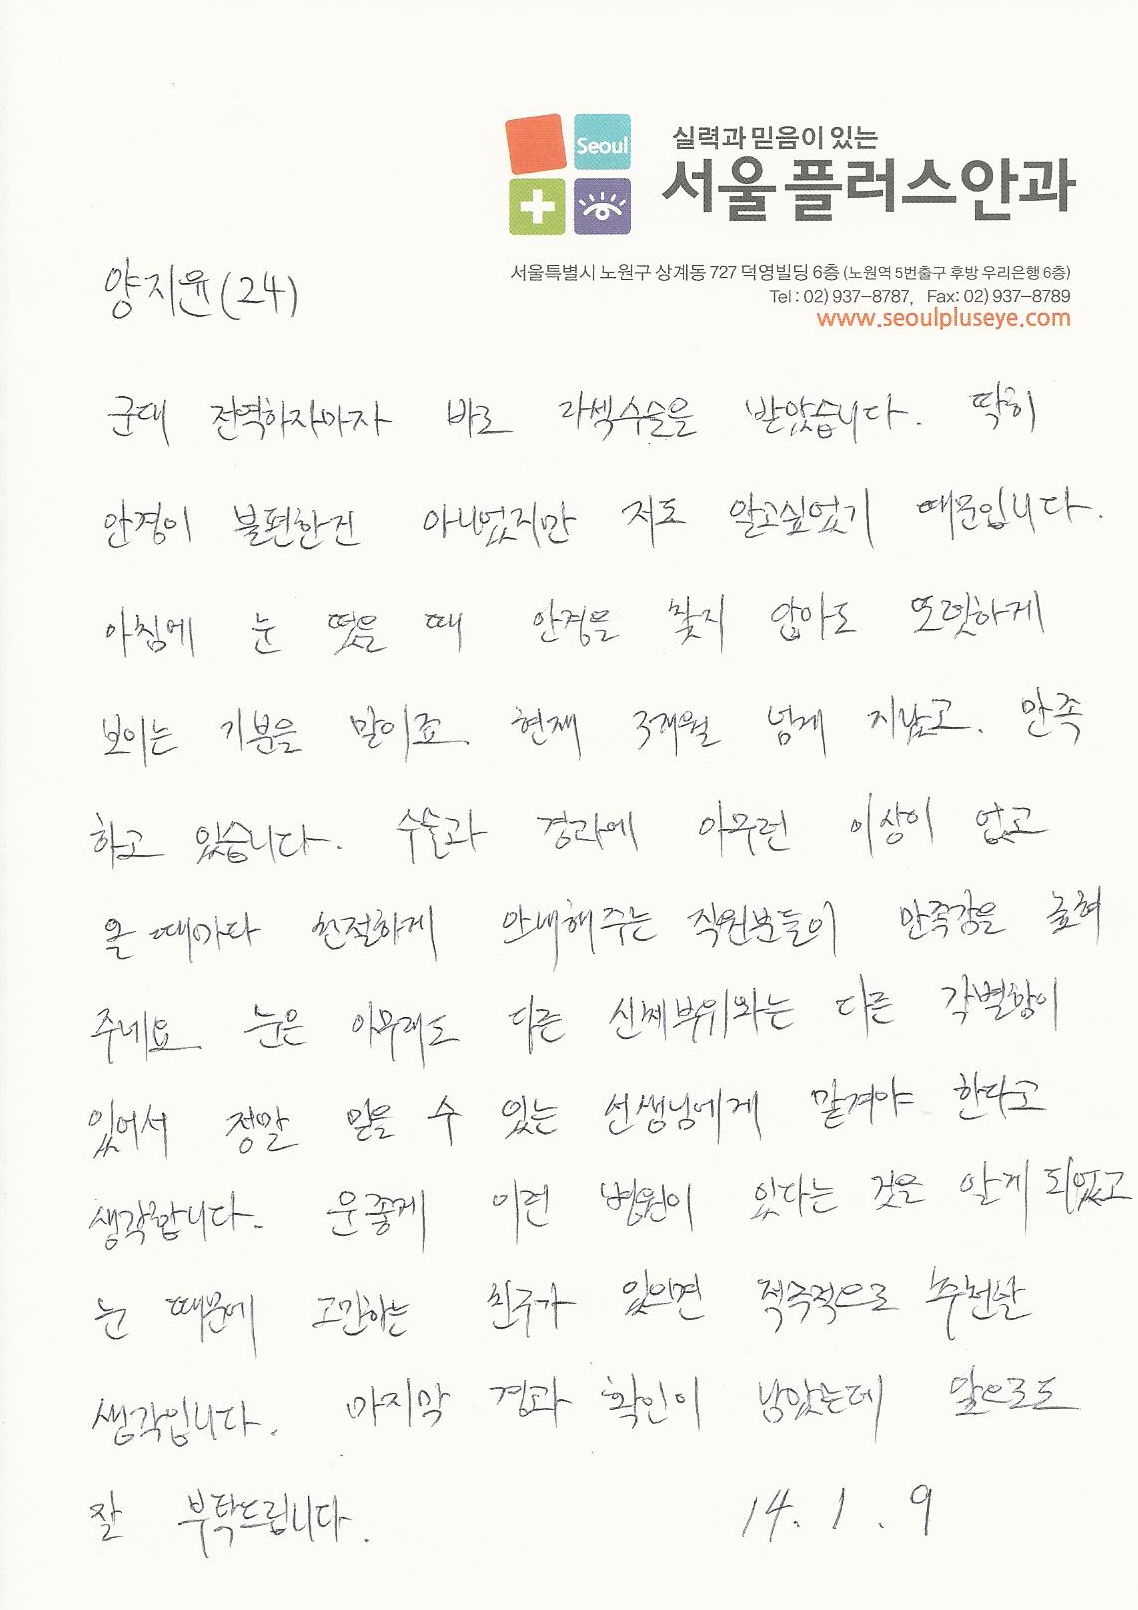 Seoul
실력과 믿음이 있는
서울플러스안과
서울특별시 노원구 상계동 727 덕영빌딩 6층 (노원역 5번출구 후방 우리은행 6층)
Tel : 02) 937-8787, Fax: 02) 937-8789
www.seoulpluseye.com
양지윤(24)
군대 전역하자마자 바로 라섹수술을 받았습니다. 딱히
안경이 불편한건 아니었지만 저도 알고싶었기 때문입니다.
아침에 눈 떴을 때 안경을 찾지 않아도 또렷하게
보이는 기분을 말이죠. 현재 3개월 넘게 지났고. 만족
하고 있습니다. 수술과 경과에 아무런 이상이 없고
올 때마다 친절하게 안내해주는 직원분들이 만족감을 높혀
주네요. 눈은 아무래도 다른 신체부위와는 다른 각별함이
있어서 정말 믿을 수 있는 선생님에게 맡겨야 한다고
생각합니다. 운좋게 이런 병원이 있다는 것을 알게 되었고
눈 때문에 고민하는 친구가 있으면 적극적으로 추천할
생각입니다. 마지막 경과 확인이 남았는데 앞으로도
잘 부탁드립니다. 14. 1. 9